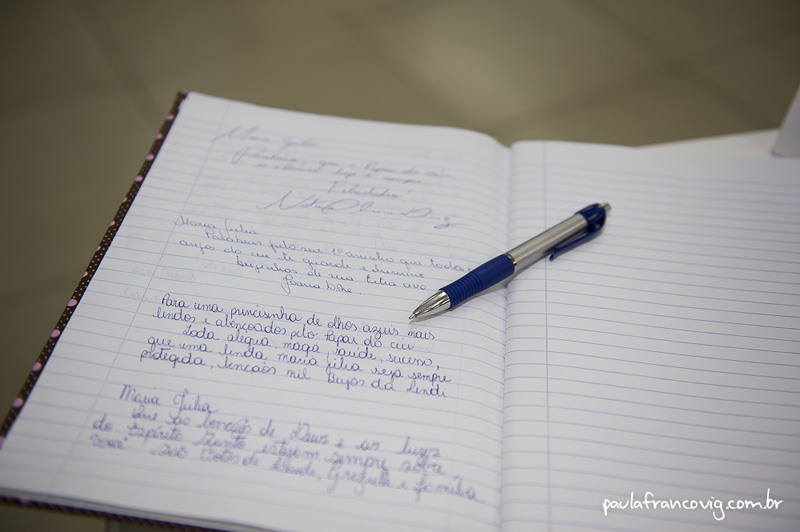 Maria Júlia
Parabéns, que o Papai do céu
Felicidades!
Maria Júlia
Parabéns pelo seu 1º aninho que todos
anjos do céu te guarde e ilumine
Beijinhos de sua titia avó
Para uma princisinha de olhos azuis mais
lindos e abençoados pelo Papai do ceu
Toda alegria, magia, saúde, sucesso,
que uma linda maria júlia seja sempre
protegida, bençãos mil Beijos da Lindi
Maria Júlia
Que as bençãos de Deus e as luzes
do Espírito Santo estejam sempre sobre
você São Votos de Claude, Graziela e família
paulafrancovig.com.br